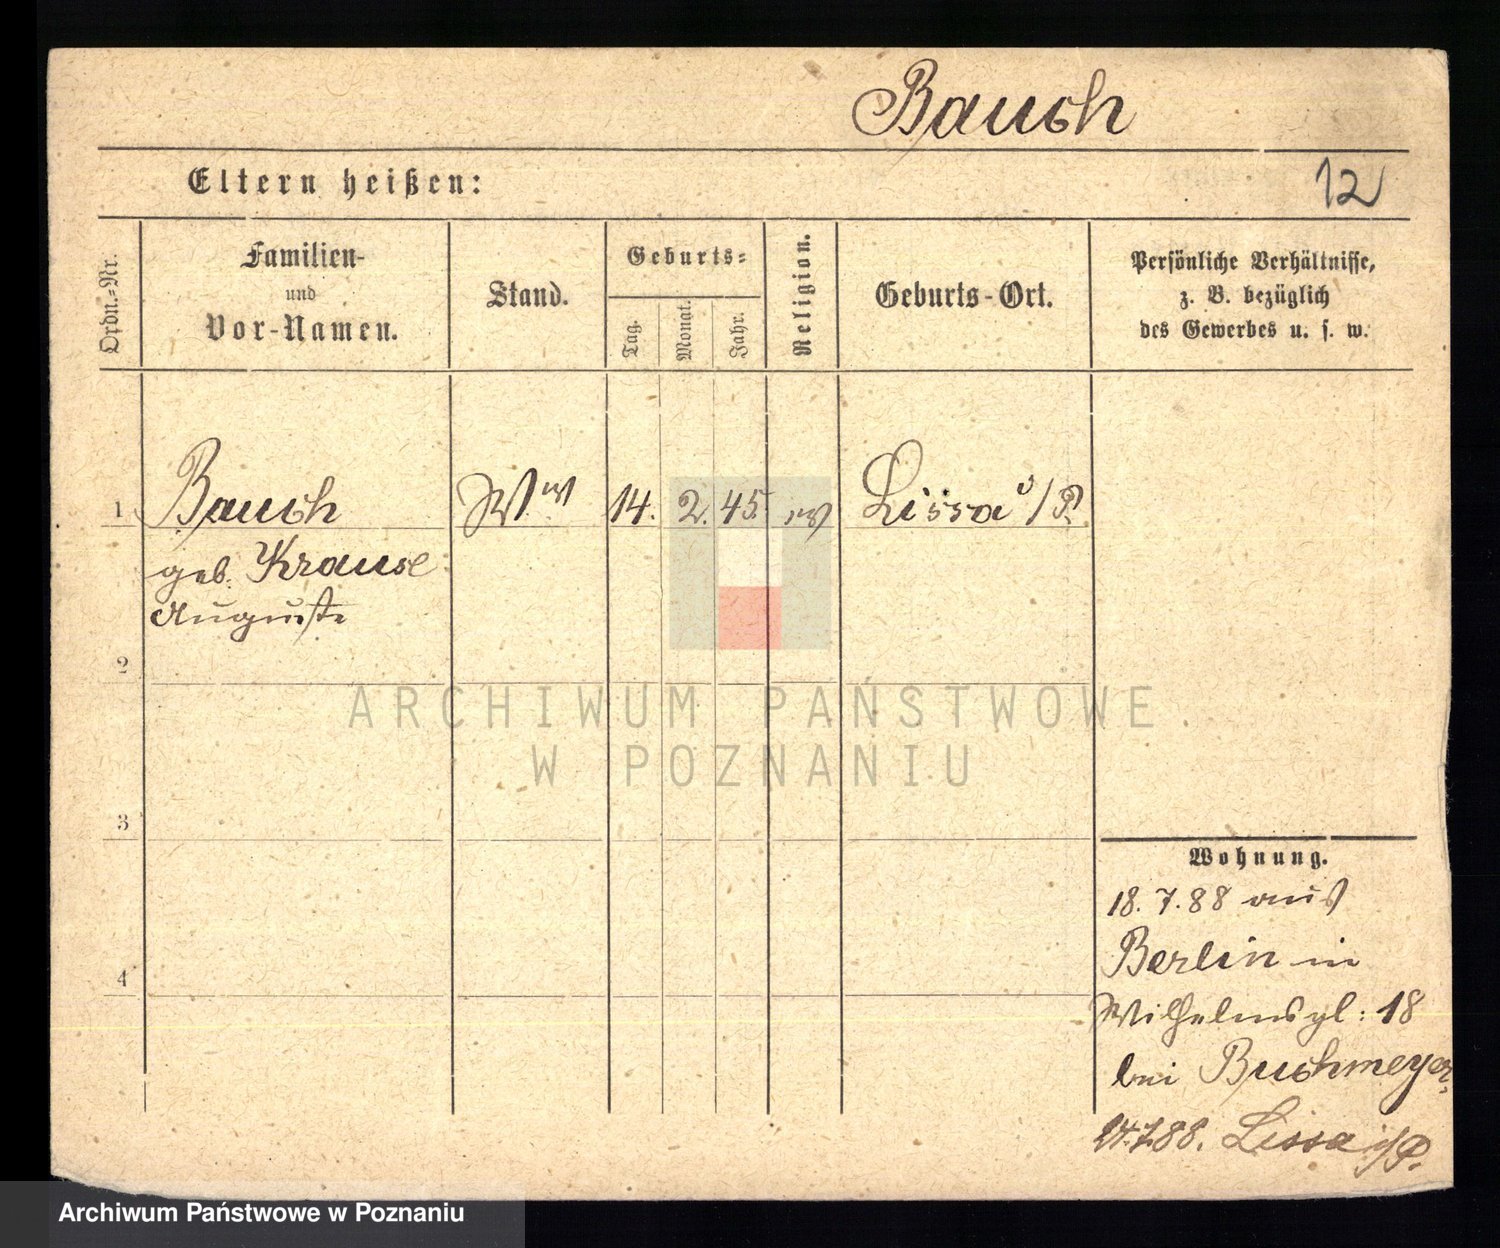 Bauch
Eltern heißen:
12
Ordn.-Nr.
Familien-
und
Vor-Namen.
Stand.
Geburts-
Tag.
Monat.
Jahr.
Religion.
Geburts-Ort.
Persönliche Verhältnisse,
z. B. bezüglich
des Gewerbes u. s. w.
1 Bauch Ww 14. 2. 45. ev Lissa i/P.
geb. Krause
Auguste
2
3
4
Wohnung.
18. 7. 88 aus
Berlin in
Wilhelmspl: 18
bei Buchmeyer,
24.7.88. Lissa i/P.
ARCHIWUM PAŃSTWOWE
W POZNANIU
Archiwum Państwowe w Poznaniu